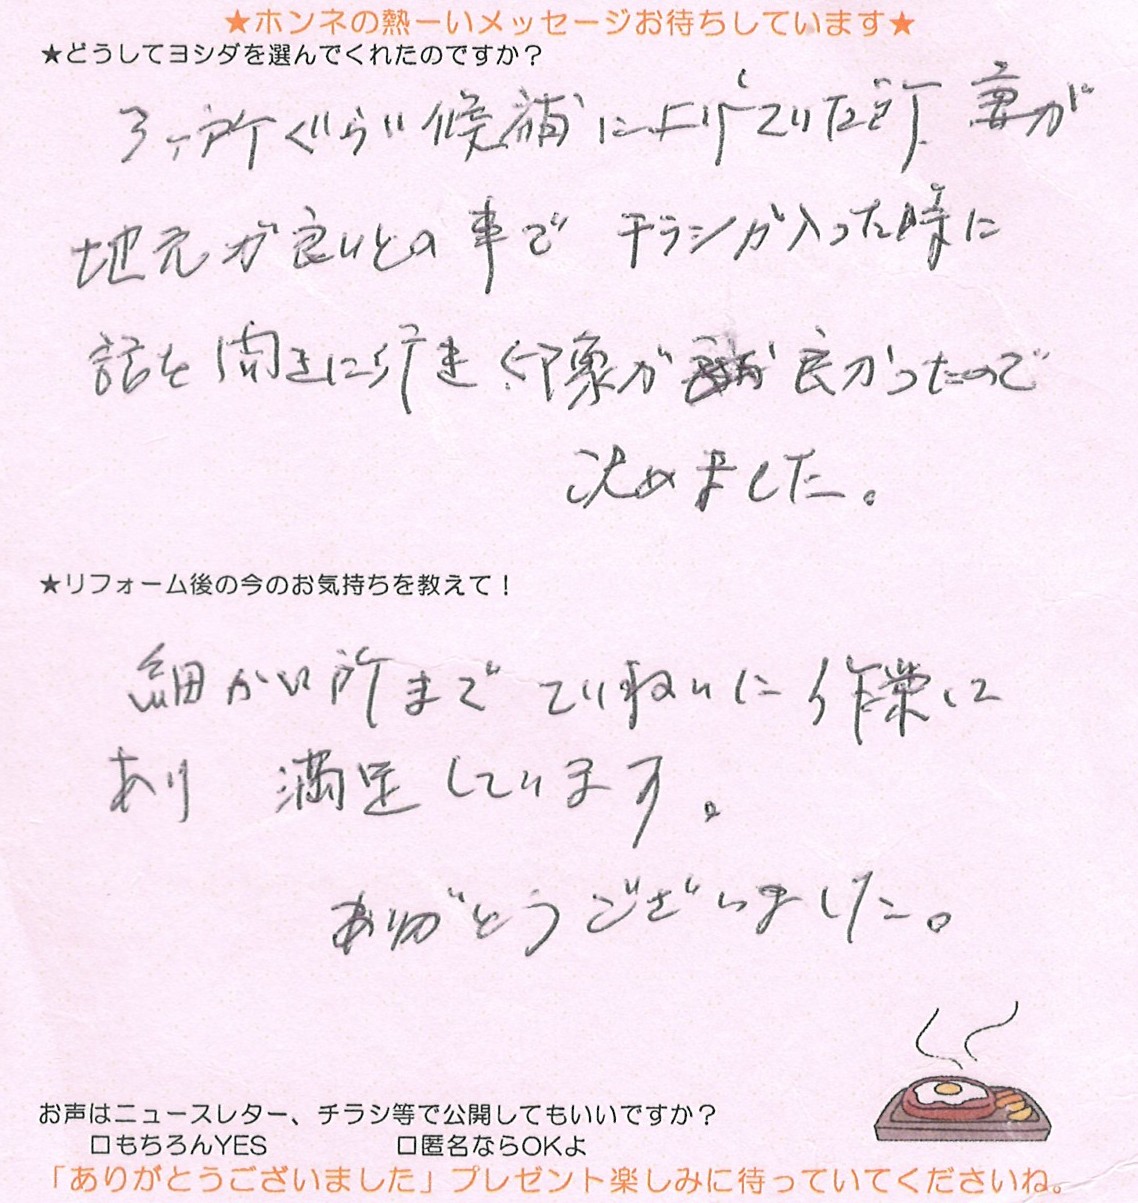 ★ホンネの熱ーいメッセージお待ちしています★
★どうしてヨシダを選んでくれたのですか？
3ヶ所ぐらい候補に上げていた所 妻が
地元が良いとの事で チラシが入った時に
話を聞きに行き 印象が 良かったので
決めました。
★リフォーム後の今のお気持ちを教えて！
細かい所まで ていねいに 作業して
あり 満足しています。
ありがとうございました。
お声はニュースレター、チラシ等で公開してもいいですか？
□もちろんYES □匿名ならOKよ
「ありがとうございました」プレゼント楽しみに待っていてくださいね。